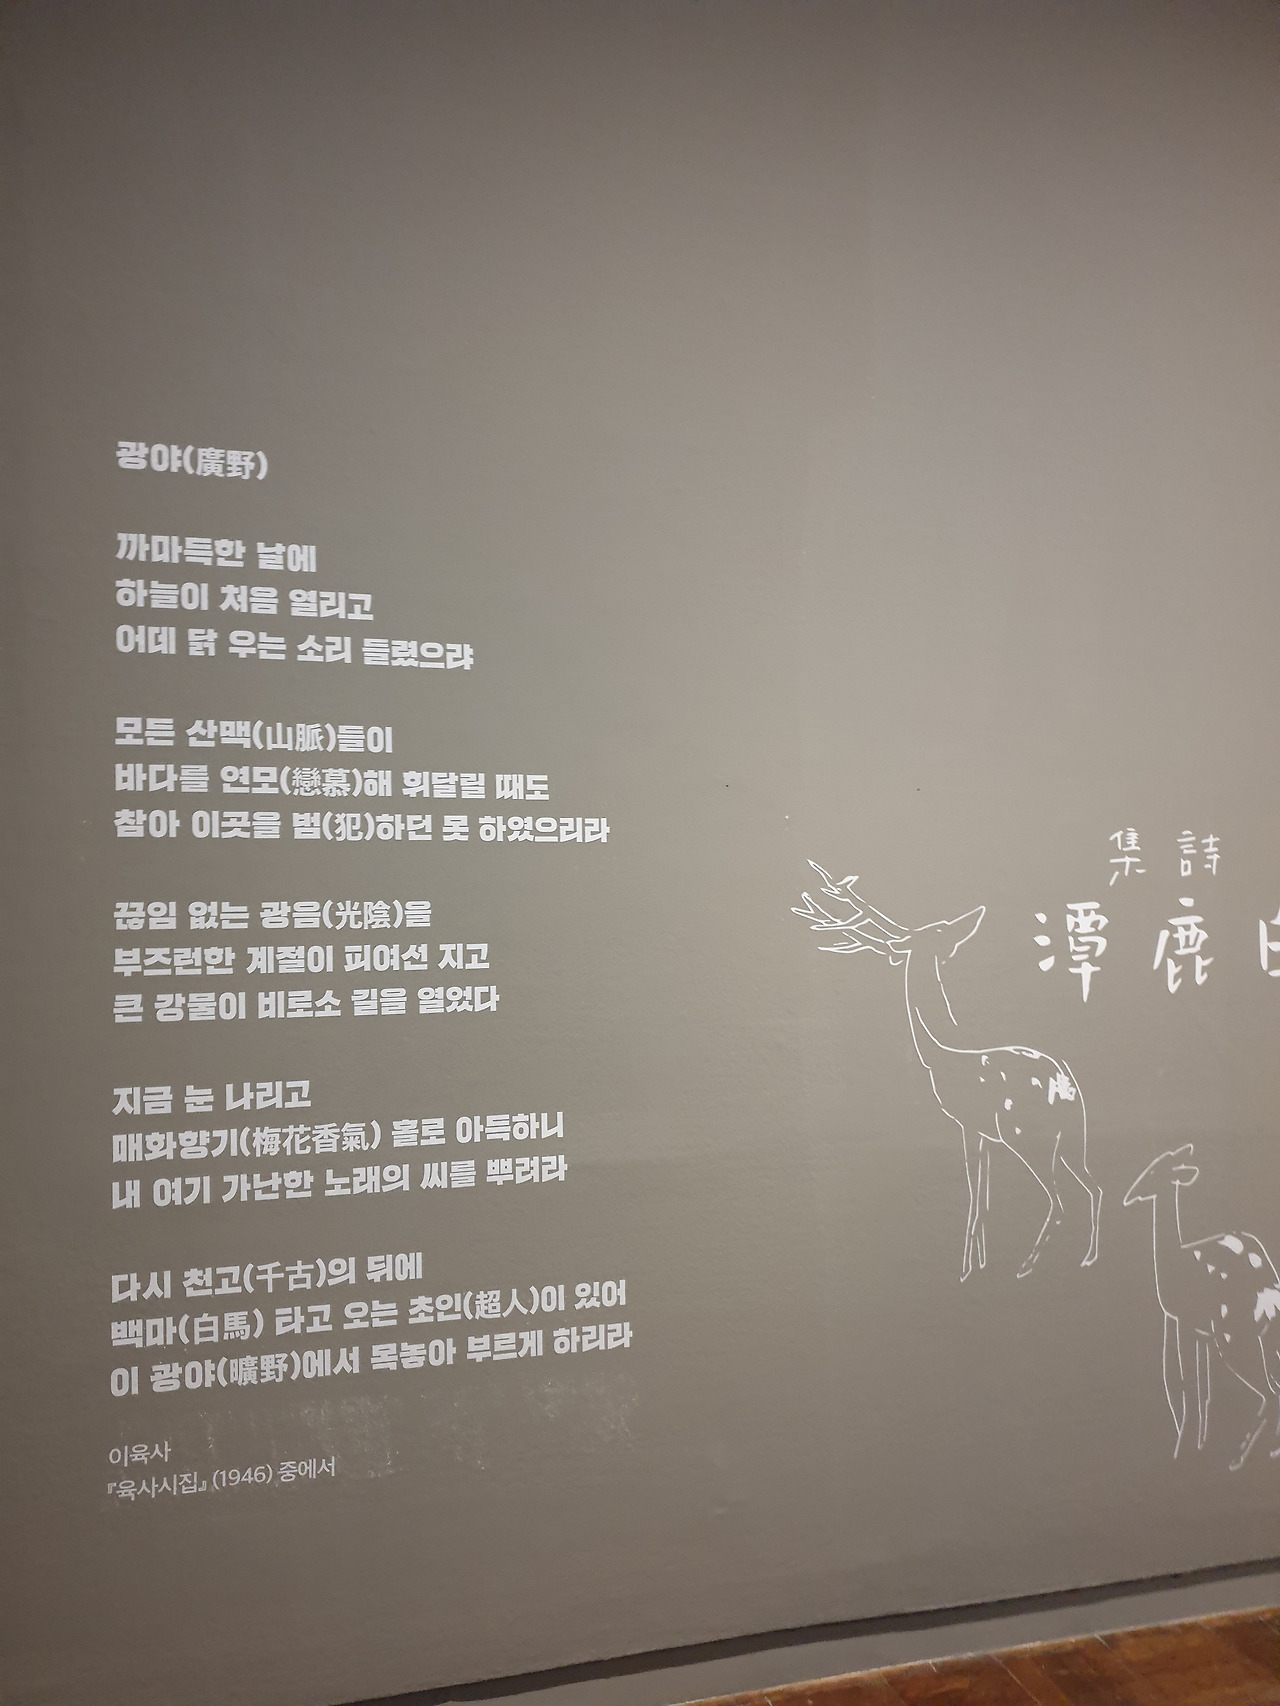 광야(廣野)
까마득한 날에
하늘이 처음 열리고
어데 닭 우는 소리 들렸으랴
모든 산맥(山脈)들이
바다를 연모(戀慕)해 휘달릴 때도
참아 이곳을 범(犯)하던 못 하였으리라
끊임 없는 광음(光陰)을
부즈런한 계절이 피여선 지고
큰 강물이 비로소 길을 열었다
지금 눈 나리고
매화향기(梅花香氣) 홀로 아득하니
내 여기 가난한 노래의 씨를 뿌려라
다시 천고(千古)의 뒤에
백마(白馬) 타고 오는 초인(超人)이 있어
이 광야(曠野)에서 목놓아 부르게 하리라
이육사
『육사시집』 (1946) 중에서
集 詩
潭 鹿